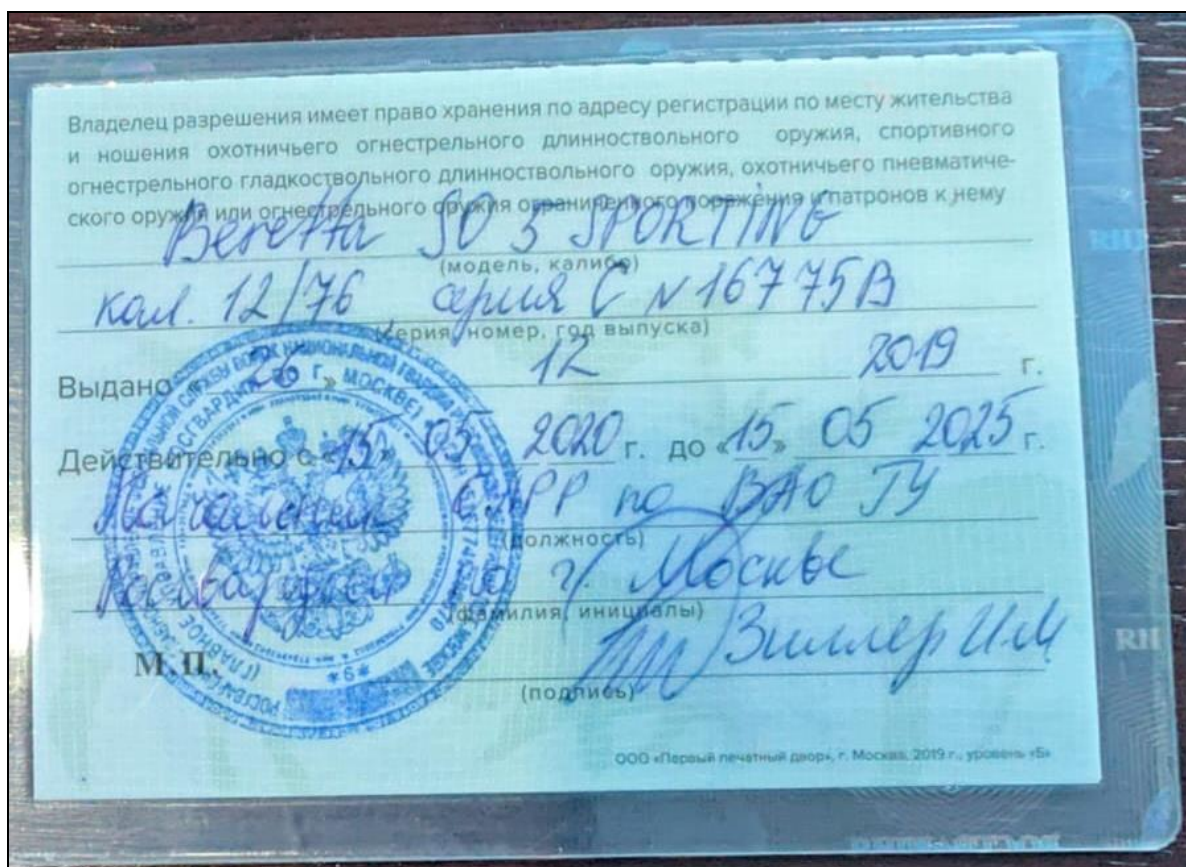 Владелец разрешения имеет право хранения по адресу регистрации по месту жительства
и ношения охотничьего огнестрельного длинноствольного оружия, спортивного
огнестрельного гладкоствольного длинноствольного оружия, охотничьего пневматиче-
ского оружия или огнестрельного оружия ограниченного поражения и патронов к нему
Beretta SO 5 SPORTING
(модель, калибр)
кал. 12/76 серия C N 16775B
(серия, номер, год выпуска)
Выдано « 26 » 12 2019 г.
Действительно с «15» 05 2020 г. до «15» 05 2025 г.
Начальник ОЛРР по ВАО ГУ
(должность)
Росгвардии по г. Москве
(фамилия, инициалы)
М.П. Зиллер И.М
(подпись)
ООО «Первый печатный двор», г. Москва, 2019 г., уровень «Б»